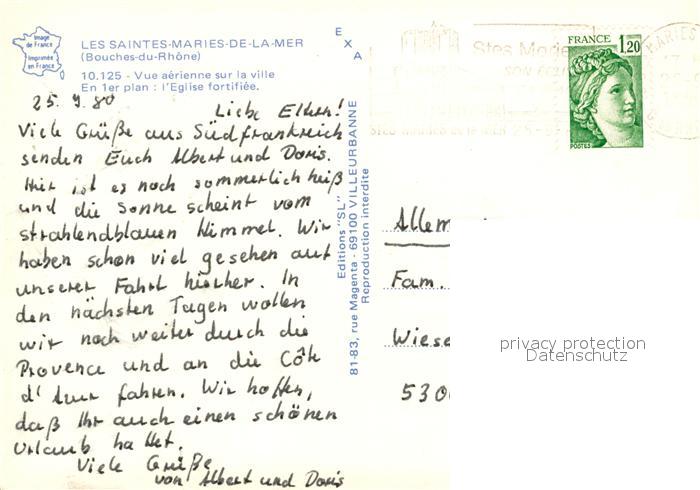 Image
de France
Imprimée
en France
LES SAINTES-MARIES-DE-LA-MER
(Bouches-du-Rhône)
10.125 - Vue aérienne sur la ville
En 1er plan : l'Eglise fortifiée.
EXA
25.9.80
Liebe Eltern!
Viele Grüße aus Südfrankreich
senden Euch Albert und Doris.
Hier ist es noch sommerlich heiß
und die Sonne scheint vom
strahlendblauen Himmel. Wir
haben schon viel gesehen auf
unserer Fahrt hierher. In
den nächsten Tagen wollen
wir noch weiter durch die
Provence und an die Côte
d'Azur fahren. Wir hoffen,
daß Ihr auch einen schönen
Urlaub hattet.
Viele Grüße
von Albert und Doris
Editions "SL"
81-83, rue Magenta - 69100 VILLEURBANNE
Reproduction interdite
Stes Maries
SON
FRANCE
1,20
POSTES
MARIES
Allem
Fam.
Wiese
530
privacy protection
Datenschutz